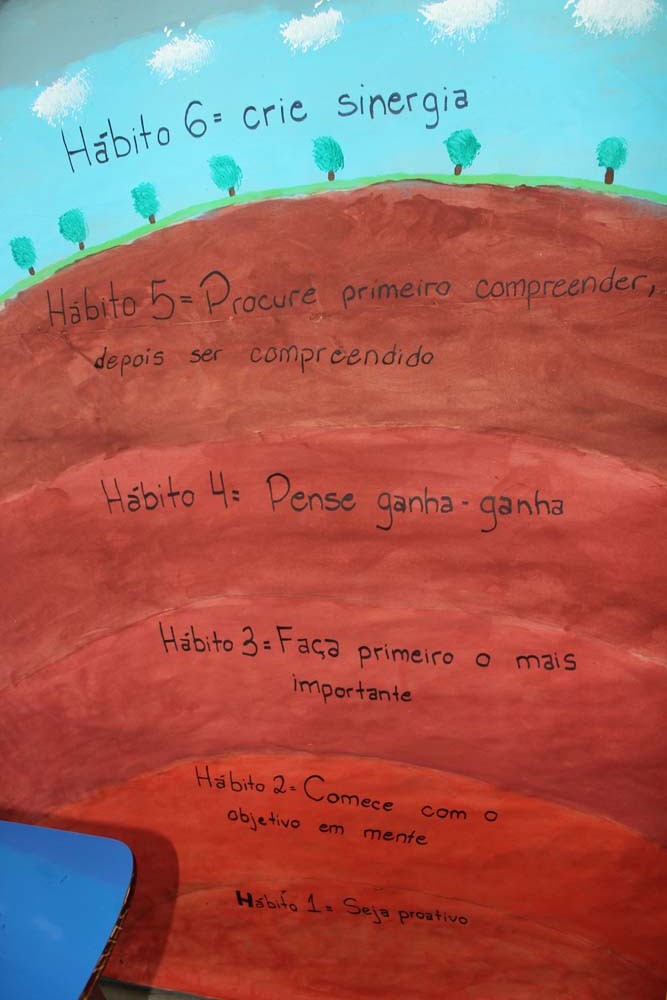 Hábito 6= crie sinergia
Hábito 5= Procure primeiro compreender,
depois ser compreendido
Hábito 4= Pense ganha-ganha
Hábito 3= Faça primeiro o mais
importante
Hábito 2= Comece com o
objetivo em mente
Hábito 1= Seja proativo